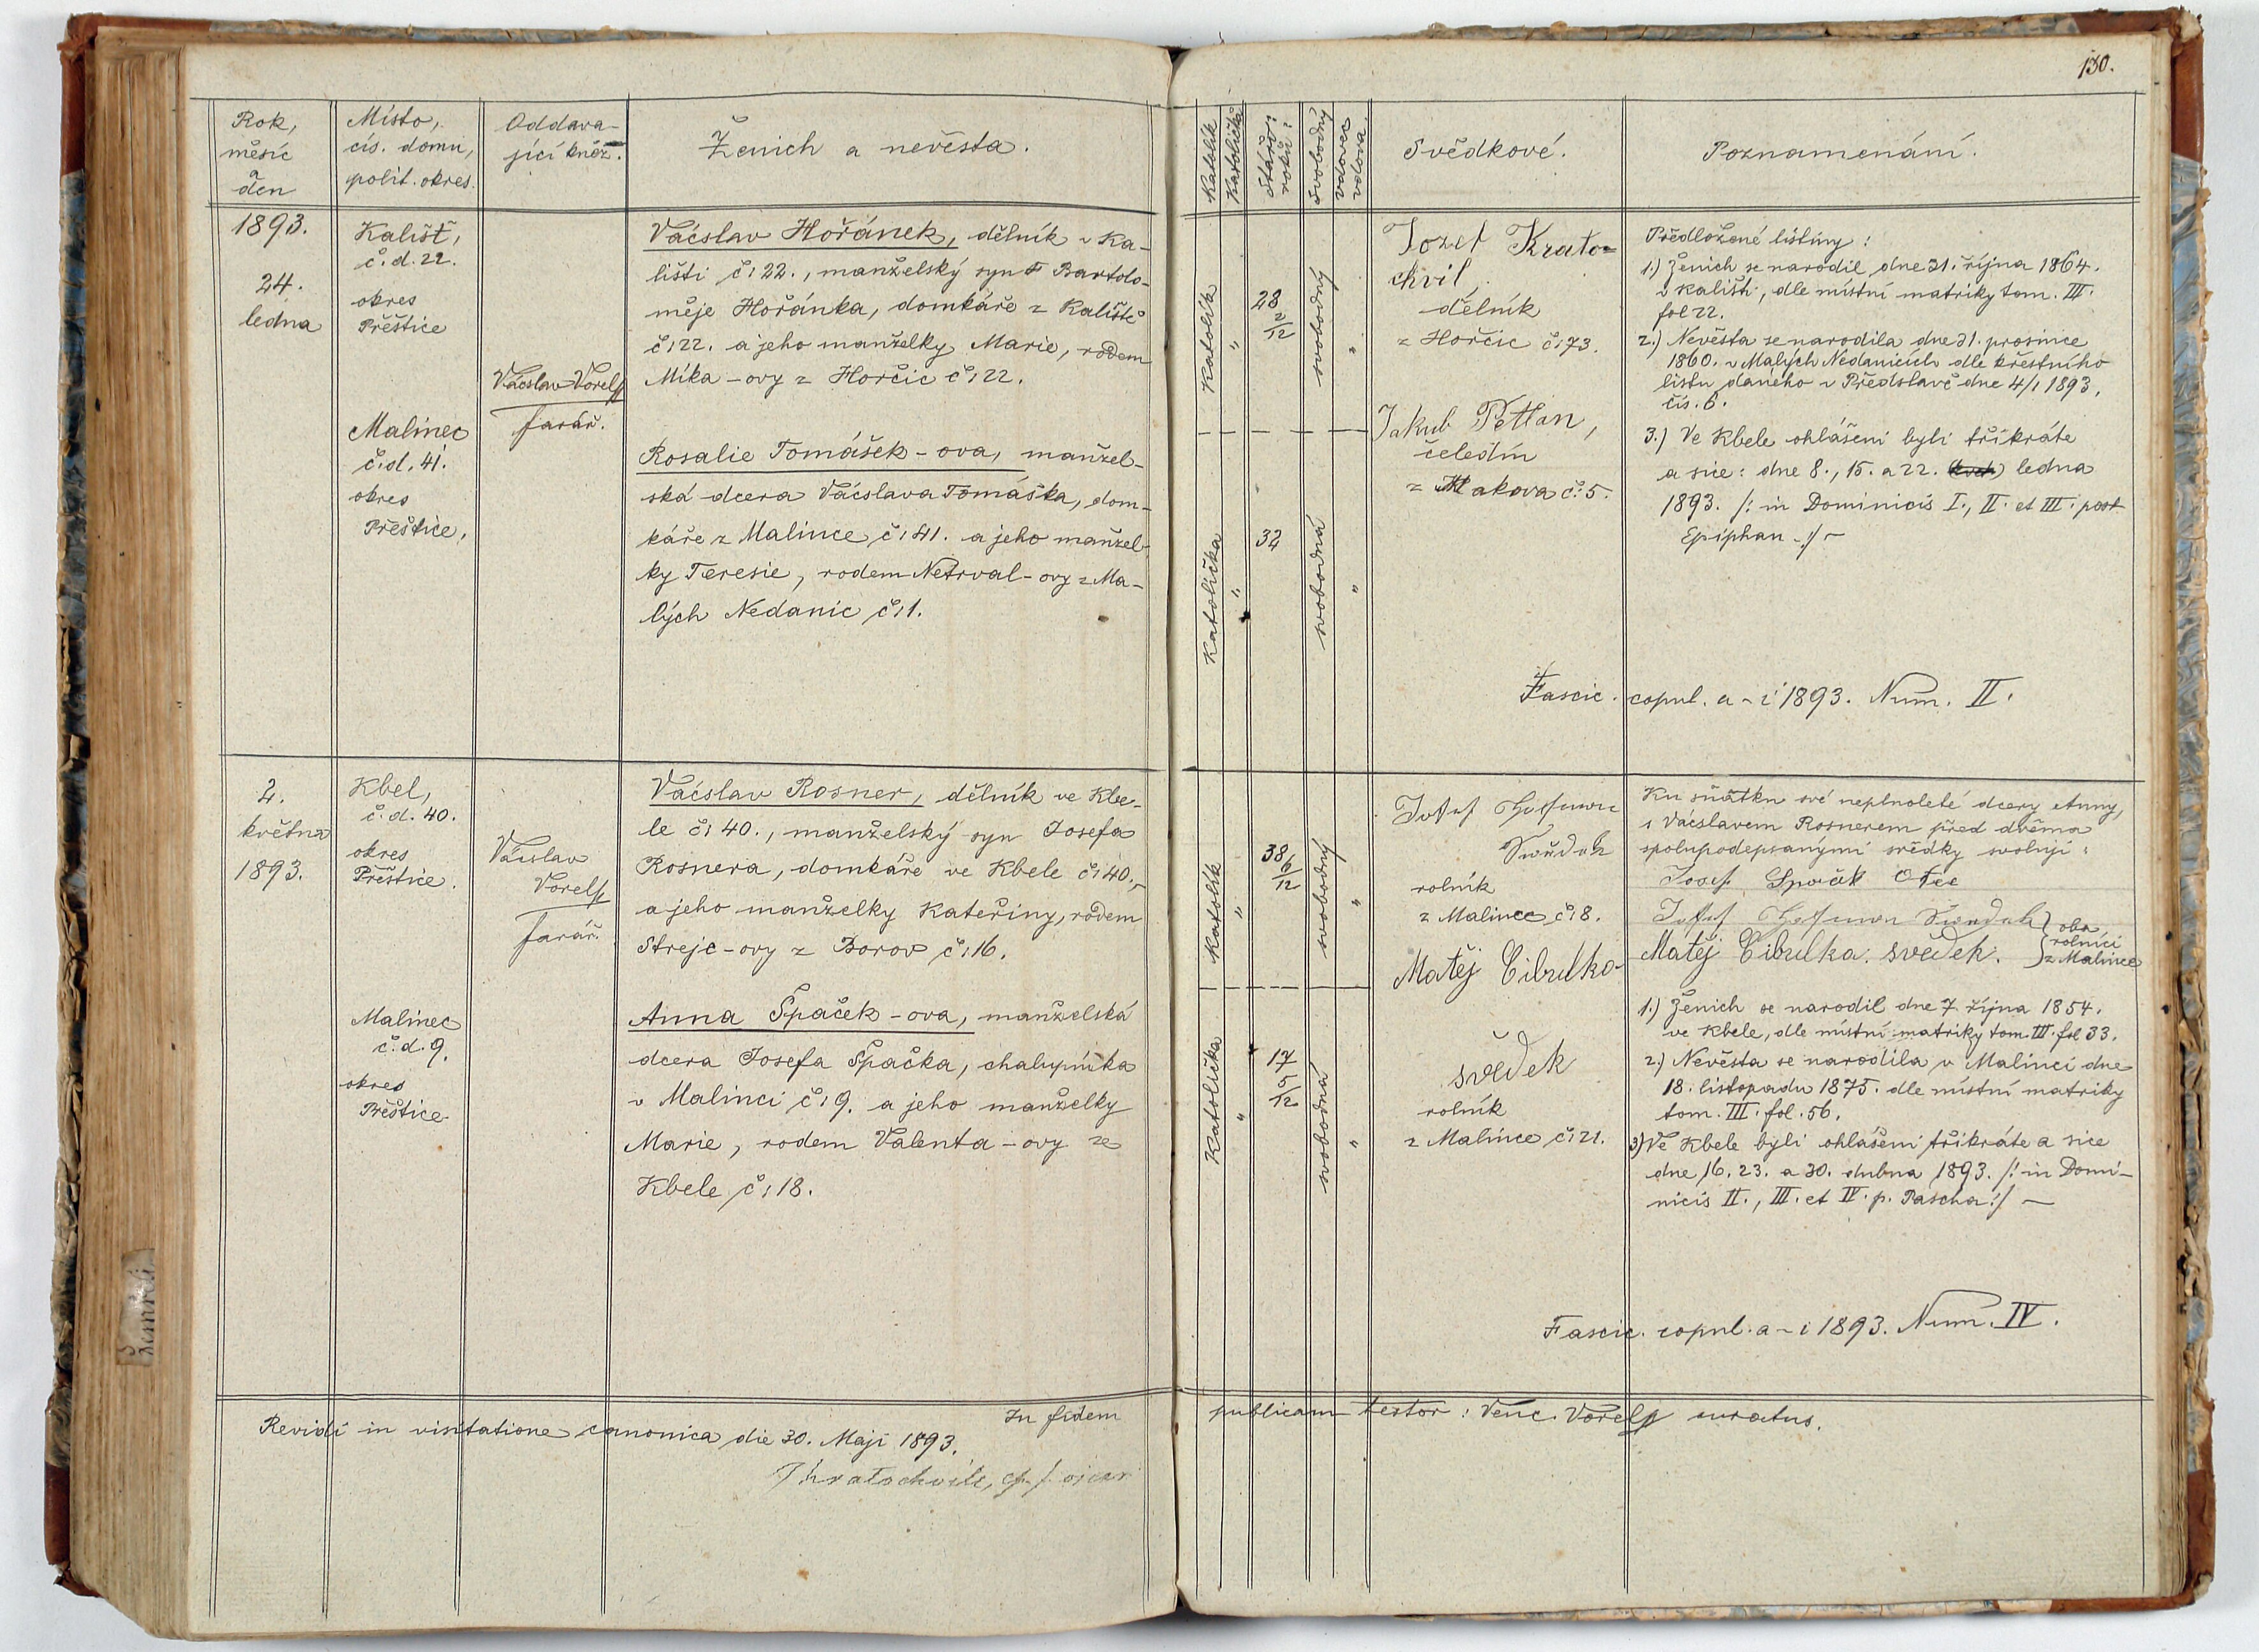 130.
Rok,
měsíc
a
den
Místo,
čís. domu,
polit. okres.
Oddava-
jící kněz.
Ženich a nevěsta.
Katolík
Katolička
Stáří:
roků:
svobodný
vdovec
vdova
Svědkové.
Poznamenání.
1893.
24.
ledna
Kališť,
č. d. 22.
okres
Přeštice
Malinec
č. d. 41.
okres
Přeštice,
Vácslav Vorel
farář.
Vácslav Hořánek, dělník v Ka-
lišti č: 22., manželský syn † Bartolo-
měje Hořánka, domkáře z Kaliště
č: 22. a jeho manželky Marie, rodem
Míka-ovy z Horčic č: 22.
Rosalie Tomášek-ova, manžel-
ská dcera Vácslava Tomáška, dom-
káře z Malince č: 41. a jeho manžel-
ky Teresie, rodem Netrval-ovy z Ma-
lých Nedanic č: 1.
Katolík
"
28
2/12
svobodný
"
Katolička
"
32
svobodná
"
Jozef Krato=
chvil
dělník
z Horčic č: 73.
Jakub
čeledín
z Makova č: 5.
Předložené listiny:
1.) Ženich se narodil dne 21. října 1864.
v Kališti, dle místní matriky tom. III.
fol 22.
2.) Nevěsta se narodila dne 21. prosince
1860. v Malých Nedanicích dle křestního
listu daného v Předslavě dne 4/1 1893,
čís. 6.
3.) Ve Kbele ohlášeni byli třikráte
a sice: dne 8., 15. a 22. ledna
1893. /: in Dominicis I., II. et III. post
Epiphan :/ -
Fascic. copul. a-i 1893. Num. II.
2.
května
1893.
Kbel,
č. d. 40.
okres
Přeštice.
Malinec
č. d. 9.
okres
Přeštice
Vácslav
Vorel
farář.
Vácslav Rosner, dělník ve Kbe-
le č: 40., manželský syn Josefa
Rosnera, domkáře ve Kbele č: 40.,
a jeho manželky Kateřiny, rodem
Strejc-ovy z Borov č: 16.
Anna Špaček-ova, manželská
dcera Josefa Špačka, chalupníka
v Malinci č: 9. a jeho manželky
Marie, rodem Valenta-ovy ze
Kbele č: 18.
Katolík
"
38
6/12
svobodný
"
Katolička
"
17
5/12
svobodná
"
Josef
rolník
z Malince č: 8.
Matěj Cibulka
svědek
rolník
z Malince č: 21.
Ku sňatku své neplnoleté dcery Anny,
s Vácslavem Rosnerem před dvěma
spolupodepsanými svědky svoluji:
Josef Špaček Otec
Josef
Matěj Cibulka. svědek.
oba
rolníci
z Malince
1.) Ženich se narodil dne 7. října 1854.
ve Kbele, dle místní matriky tom. III. fol 33.
2.) Nevěsta se narodila v Malinci dne
18. listopadu 1875. dle místní matriky
tom. III. fol. 56.
3) Ve Kbele byli ohlášeni třikráte a sice
dne 16. 23. a 30. dubna 1893. /: in Domi-
nicis II., III. et IV. p. Pascha :/ —
Fascic. copul. a-i 1893. Num. IV.
In fidem publicam testor: Venc. Vorel curatus.
Revidi in visitatione canonica die 30. Maji 1893.